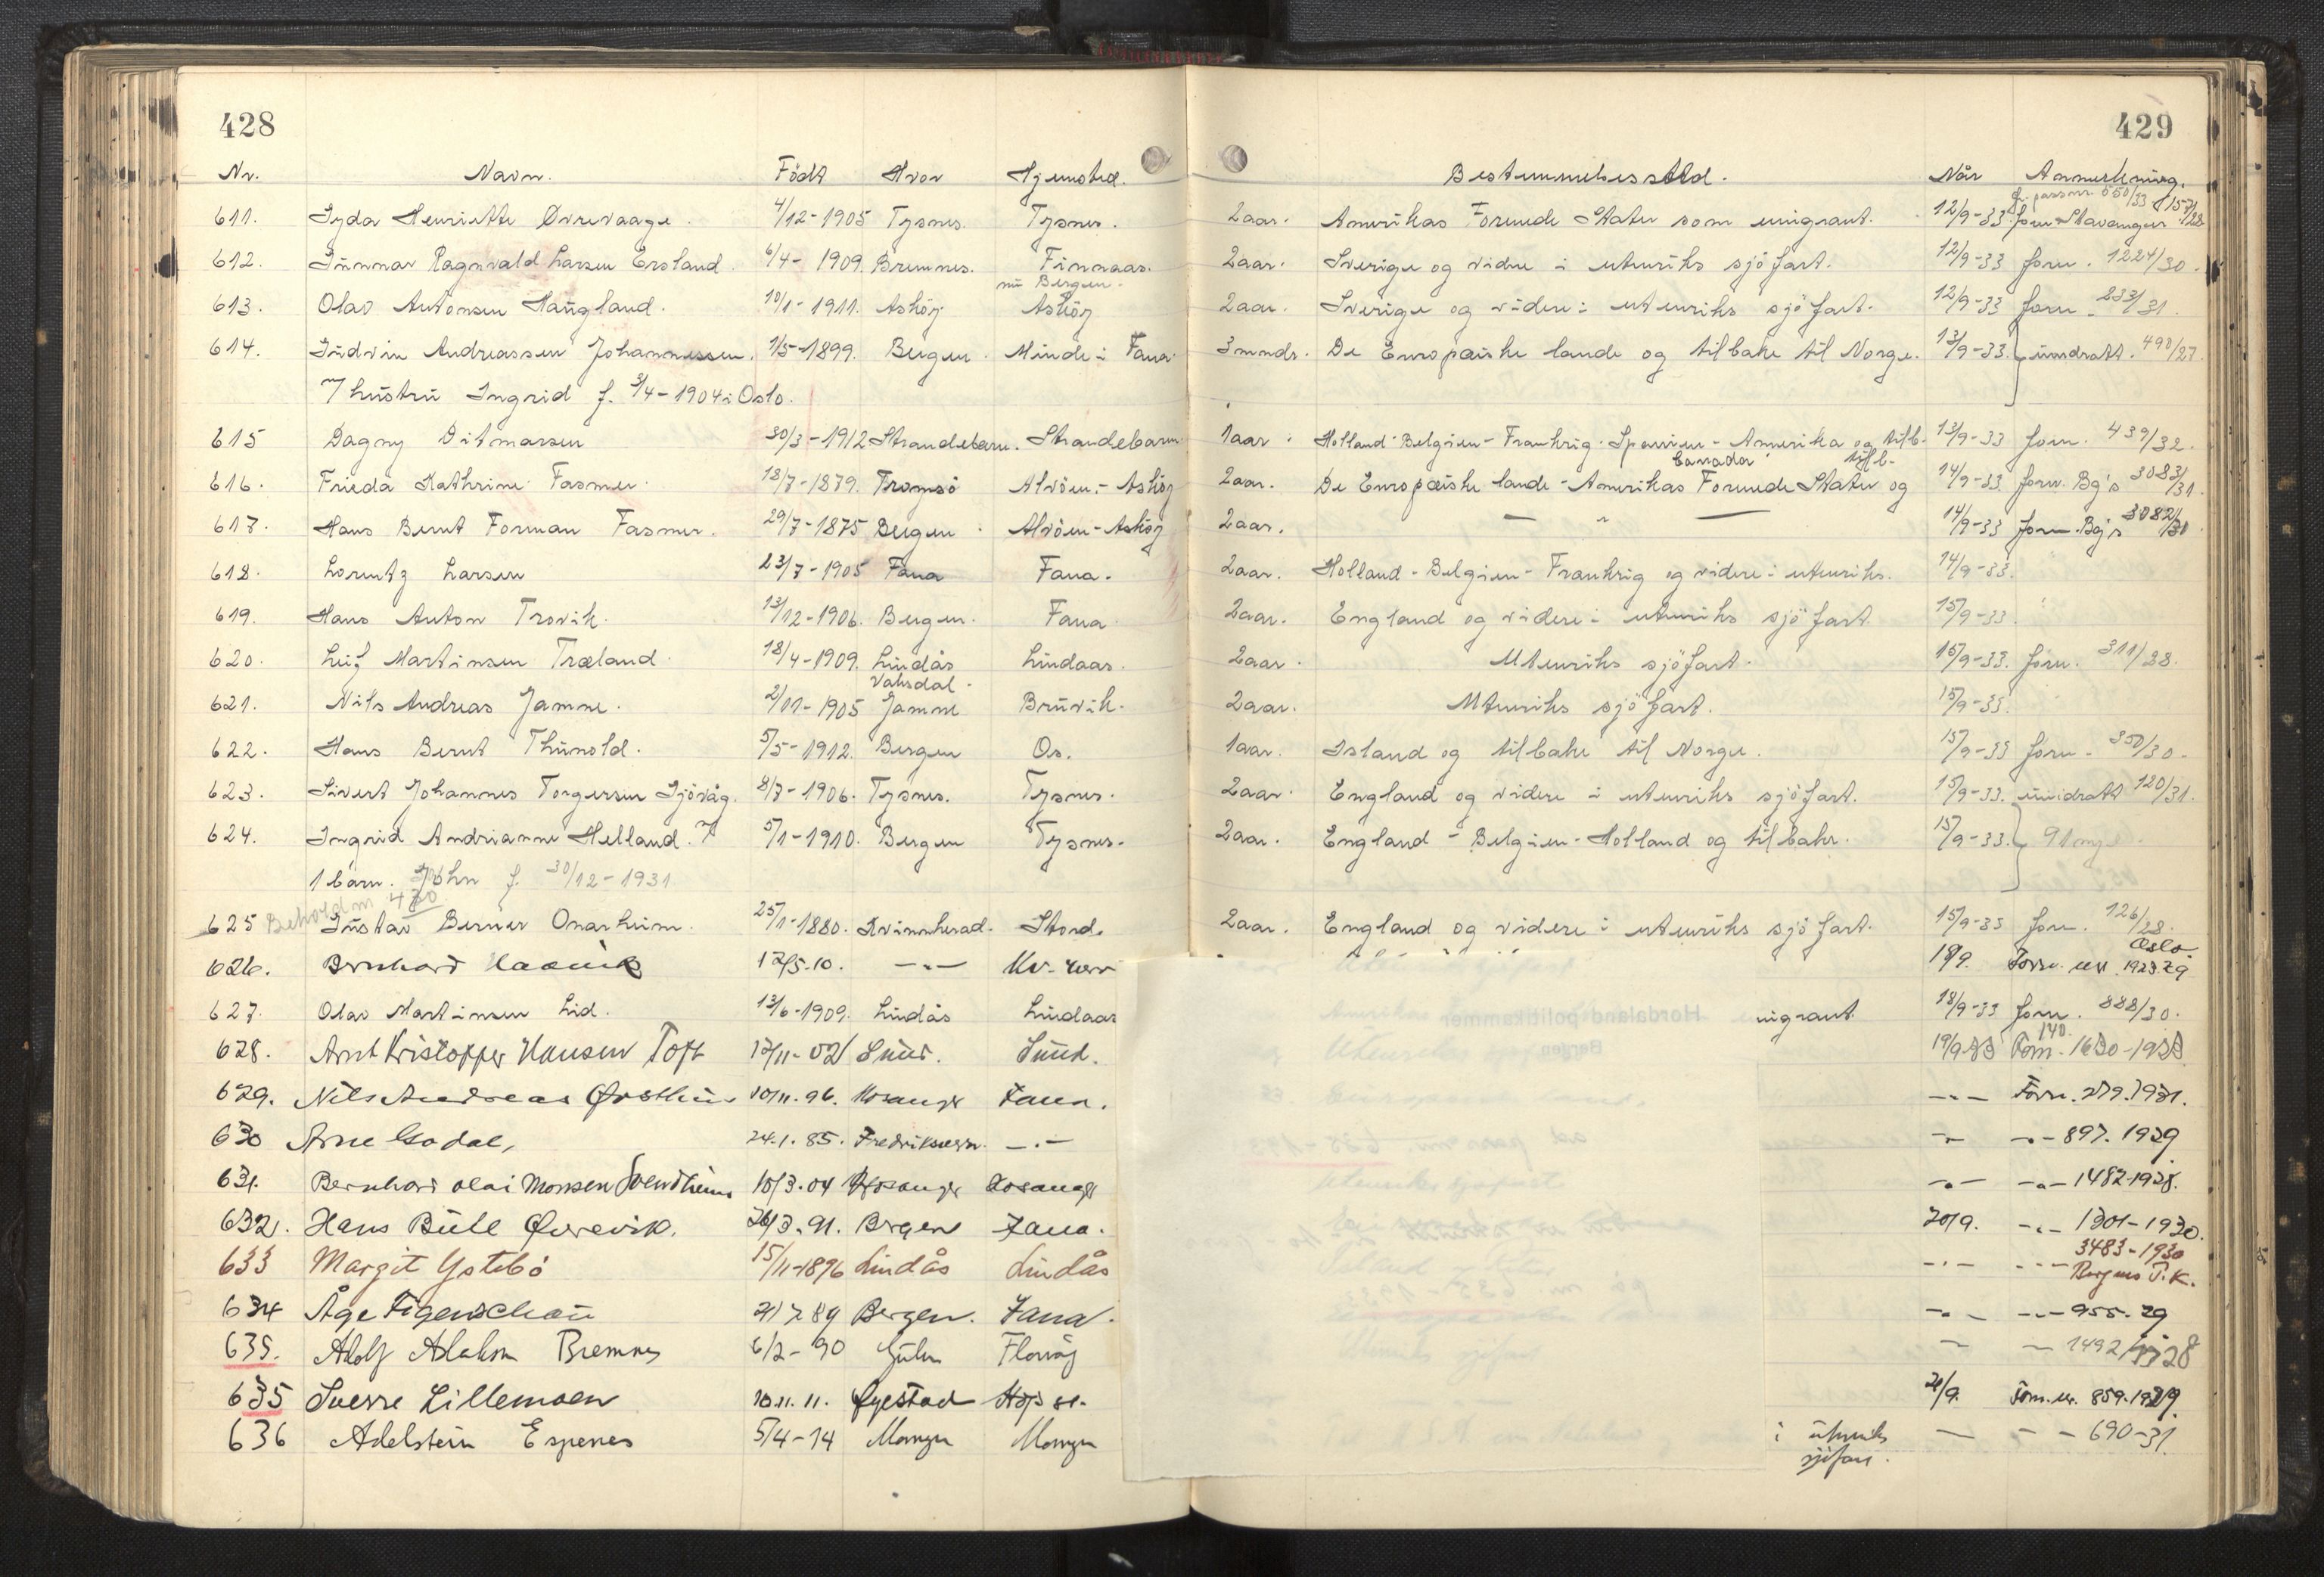 428
429
Nr. Navn. Født Hvor Hjemsted. Bestemmelsessted. Når Anmerkning.
611. Gyda Henriette Øvrevaage. 4/12-1905 Tysnes. Tysnes. 2aar. Amerikas Forenede Stater som emigrant. 12/9-33 forn. Stavanger
612. Gunnar Ragnvald Larsen Ersland. 6/4-1909. Bremnes. Finnaas. 2aar. Sverige og videre i utenriks sjöfart. 12/9-33 forn. 1224/30.
nu Bergen.
613. Olav Antonsen Haugland. 10/1-1911. Askøy Askøy 2aar. Sverige og videre i utenriks sjöfart. 12/9-33 forn. 233/31.
614. Gudvin Andreassen Johannessen. 1/5-1899. Bergen. Minde i Fana. 3mnds. De Europæiske lande og tilbake til Norge. 13/9-33. inndratt. 490/27.
7 hustru Ingrid f. 3/4-1904 i Oslo.
615 Dagny Ditmarsen 30/3-1912 Strandebarm. Strandebarm. 1aar. Holland-Belgien-Frankrig-Spanien-Amerika og tilb. 13/9-33 forn. 439/32.
Canada tilb.
616. Frieda Kathrine Fasmer. 18/7-1879. Tromsö Alvöen-Askøy 2aar. De Europæiske lande-Amerikas Forenede Stater og 14/9-33 forn. Bg's 3083/31.
617. Hans Bernt Forman Fasmer. 29/7-1875 Bergen Alvöen-Askøy 2aar. — " — 14/9-33 forn. Bg's 3082/30
618. Lorentz Larsen 23/7-1905 Fana Fana. 2aar. Holland-Belgien-Frankrig og videre i utenriks. 14/9-33.
619. Hans Anton Trovik. 13/12-1906. Bergen. Fana. 2aar. England og videre i utenriks sjöfart. 15/9-33.
620. Leif Martinsen Træland. 18/4-1909. Lindås Lindaas. 2aar. Utenriks sjöfart. 15/9-33. forn. 311/28.
Vaksdal.
621. Nils Andreas Jamne. 2/11-1905 Jamne Bruvik. 2aar. Utenriks sjöfart. 15/9-33.
622. Hans Bernt Thunold. 5/5-1912. Bergen Os. 1aar. Island og tilbake til Norge. 15/9-33 forn. 350/30.
623. Sivert Johannes Torgersen Gjövåg. 8/7-1906. Tysnes. Tysnes. 2aar. England og videre i utenriks sjöfart. 15/9-33. inndratt 120/31.
624. Ingrid Andrianne Helland. 7 5/1-1910. Bergen Tysnes. 2aar. England-Belgien-Holland og tilbake. 15/9-33.
1 barn. John f. 30/12-1931
625 Gustav Berner Onarheim. 25/1-1880. Kvinnherad. Stord. 2aar. England og videre i utenriks sjöfart. 15/9-33 forn. 126/28.
Oslo.
626. Bernhard 12/5-10. —"— 19/9. Forn. 1923.29
627. Olav Martinsen Lid. 13/6-1909. Lindås Lindaas migrant. 18/9-33 forn. 888/30.
140.
628. Arnt Kristoffer Hansen Toft 12/11-02 Sund. Sund. 19/9-33 Forn. 1630-1928
629. Nils Andreas Østhus 10/11.96. Hosanger Fana. —"— Forn. 279.1931.
630 Arne Godal, 24.1.85. Fredriksvern. —"— —"— —"— 897.1929
631. Bernhard Olai Monsen Svendheim 10/3-04 Hosanger Hosanger —"— —"— 1482-1928.
632. Hans Bull Øvrevik. 26/3.91. Bergen Fana. 20/9. —"— 1301-1930.
3483-1930
633 Margit Ystebö 15/11-1896 Lindås Lindås —"— —"— Bergens P.K.
634 Åge Figenschou 21/7 89 Bergen. Fana. —"— —"— 955.29
635. Adolf Bremnes 6/2-90 Florvåg —"— 1492/28
635 Sverre Lillemoen 10.11.11. Øyestad Hop st. 21/9. Forn. nr. 859.1929.
636 Adelstein Espenes 5/4-14 Manger Manger i utenriks — — — 690-31
sjöfart.